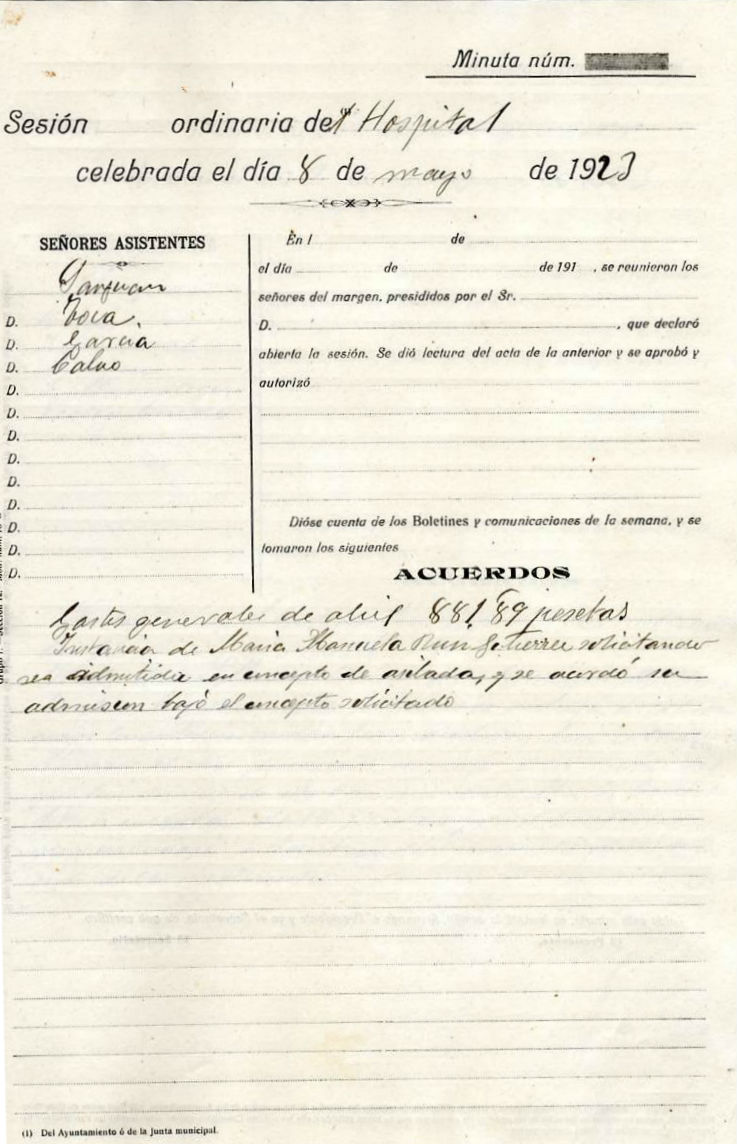 Minuta núm.
Sesión ordinaria del Hospital
celebrada el día 8 de mayo de 1923
SEÑORES ASISTENTES
Sanjuan
D. Toca,
D. Garcia
D. Calvo
D.
D.
D.
D.
D.
D.
D.
D.
D.
En l de
el día de de 191 , se reunieron los
señores del margen, presididos por el Sr.
D. , que declaró
abierta la sesión. Se dió lectura del acta de la anterior y se aprobó y
autorizó
Dióse cuenta de los Boletines y comunicaciones de la semana, y se
tomaron los siguientes
ACUERDOS
Gastos generales de abril 881'89 pesetas
Instancia de Maria Manuela Ruiz Gutierrez solicitando
sea admitida en concepto de asilada, y se acordó su
admision bajo el concepto solicitado
(1) Del Ayuntamiento ó de la Junta municipal.